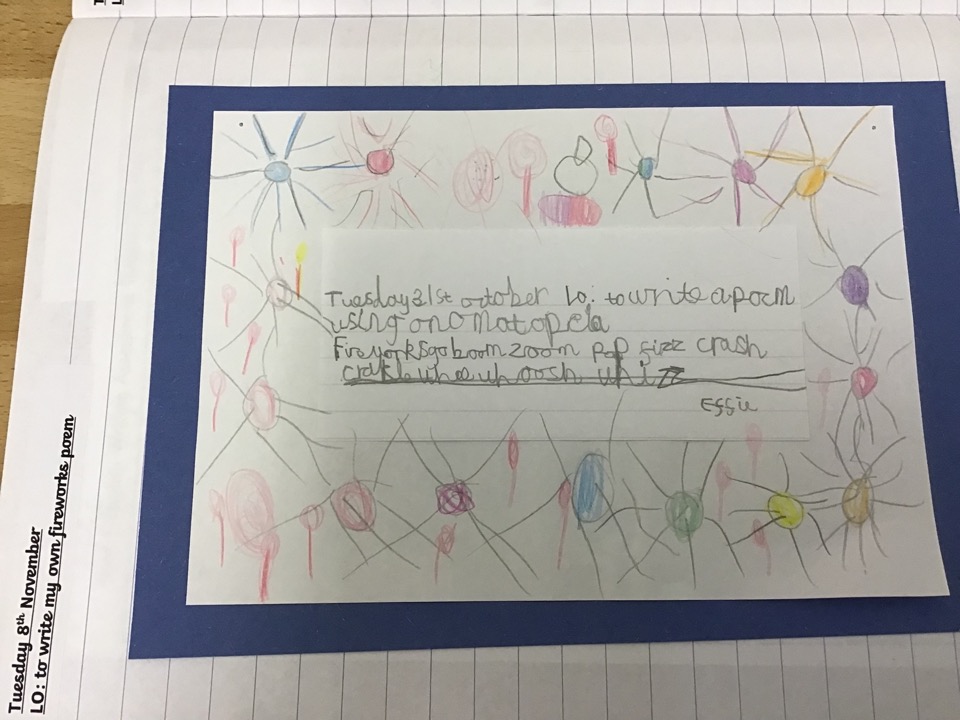 Tuesday 8th November
LO: to write my own fireworks poem
Tuesday 31st october lo: to write a poem
using onomatopeia
Fireyorks go boom zoom pop fizz crash
crakle whee whoosh whizz
Essie